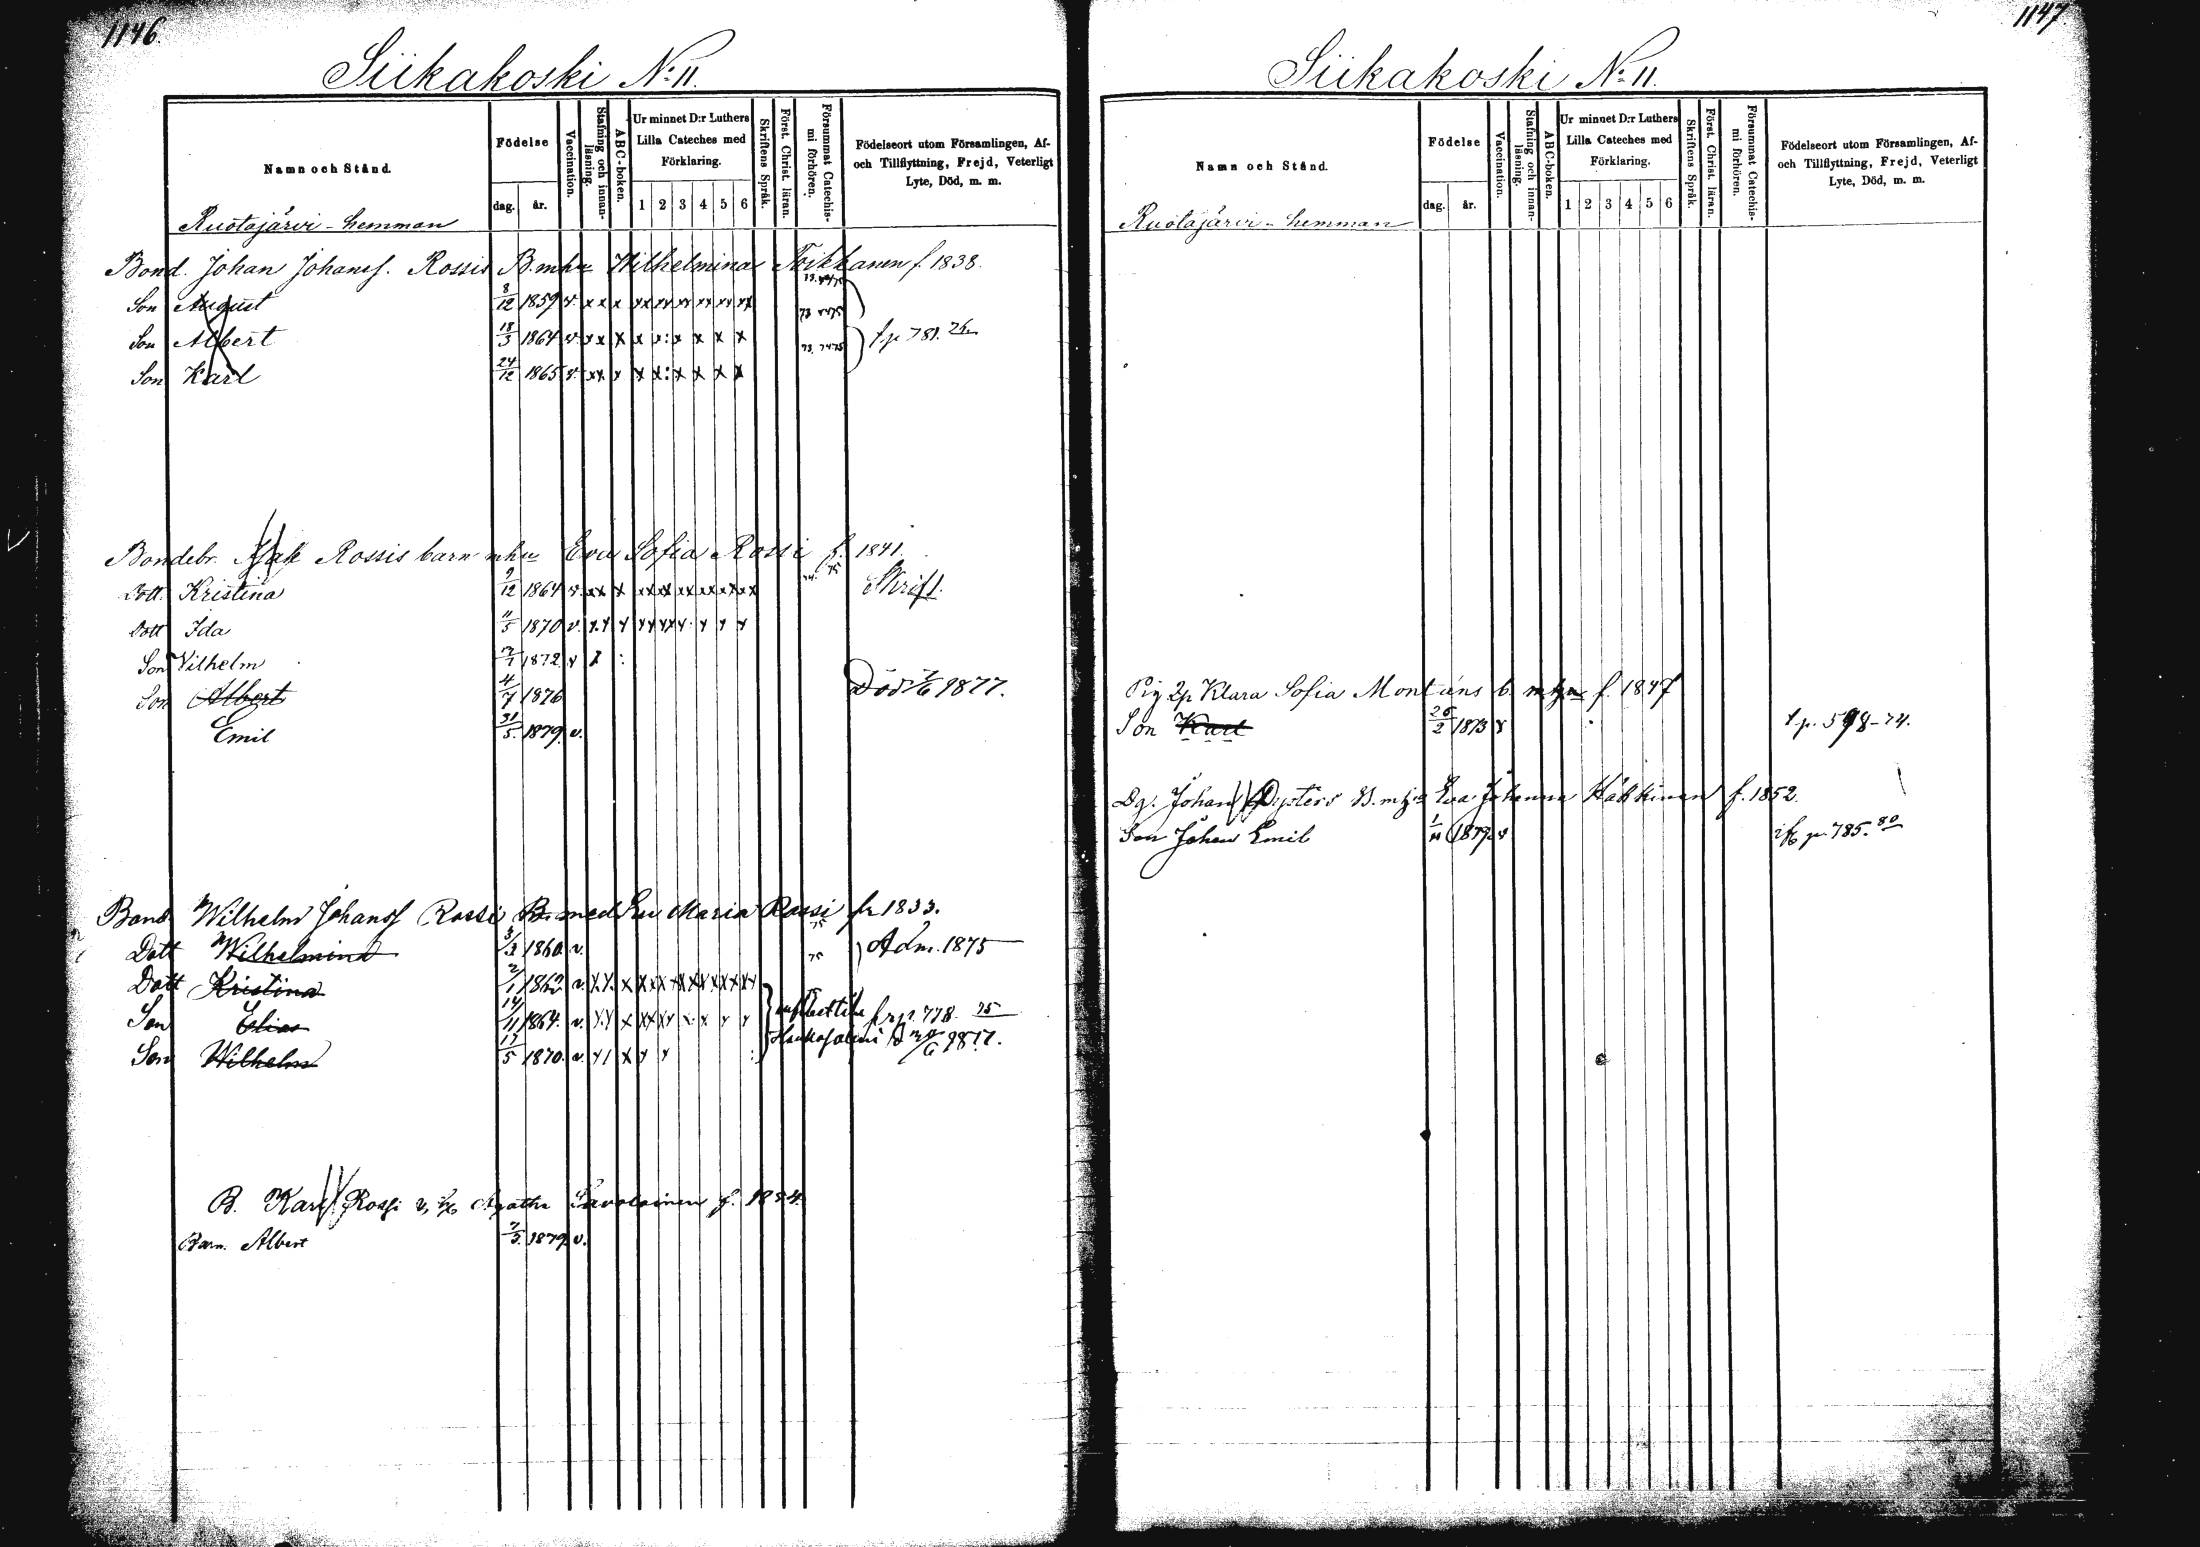 1146.
Siikakoski No 11.
Namn och Stånd.
Födelse
dag.
år.
Vaccination.
Stafning och innanläsning.
ABC-boken.
Ur minnet D:r Luthers Lilla Cateches med Förklaring.
1 2 3 4 5 6
Skriftens Språk.
Först. Christ. läran.
Försummat Catechismi förhören.
Födelseort utom Församlingen, Af-
och Tillflyttning, Frejd, Veterligt
Lyte, Död, m. m.
Ruotajärvi-hemman
Bond. Johan Johanss. Rossis B. mhu Wilhelmina Toikkanen f. 1838.
Son August 8/12 1859 v. x x x xx xx xx xx xx xx
Son Albert 18/3 1864 v. x x x x x: x x x x
Son Karl 24/12 1865 v. xx x x x: x x x x
t p 781. 76
Bondebr. Isak Rossis barn mhu Eva Sofia Rossi f. 1841.
Dott. Kristina 9/12 1864 v. xx x xx xx xx xx xx xx Skrift.
Dott Ida 11/5 1870 v.
Son Vilhelm 1872 v
Son Albert 4/7 1876 Död 1877.
Emil 31/5 1879. v.
Bond. Wilhelm Johanss Rossi B. med Eva Maria Rossi f. 1833.
Dott Wilhelmina 3/3 1860. v. Adm. 1875
Dott Kristina 2/1 1862 v.
Son Elias 14/11 1864. v. fr p. 778. 75
Son Wilhelm 17/5 1870. v.
B. Karl Rossi Agatha Savolainen f. 1854.
Barn. Albert 7/5 1879 v.
1147
Siikakoski No 11.
Namn och Stånd.
Födelse
dag.
år.
Vaccination.
Stafning och innanläsning.
ABC-boken.
Ur minnet D:r Luthers Lilla Cateches med Förklaring.
1 2 3 4 5 6
Skriftens Språk.
Först. Christ. läran.
Försummat Catechismi förhören.
Födelseort utom Församlingen, Af-
och Tillflyttning, Frejd, Veterligt
Lyte, Död, m. m.
Ruotajärvi-hemman
Pig Klara Sofia Montins b. f. 1847
Son Karl 26/2 1873 v t p. 598-74.
Dg. Johan Dysters B. mhu Eva Johanna Häkkinen f. 1852.
Son Johan Emil 1879. v p 785. 80